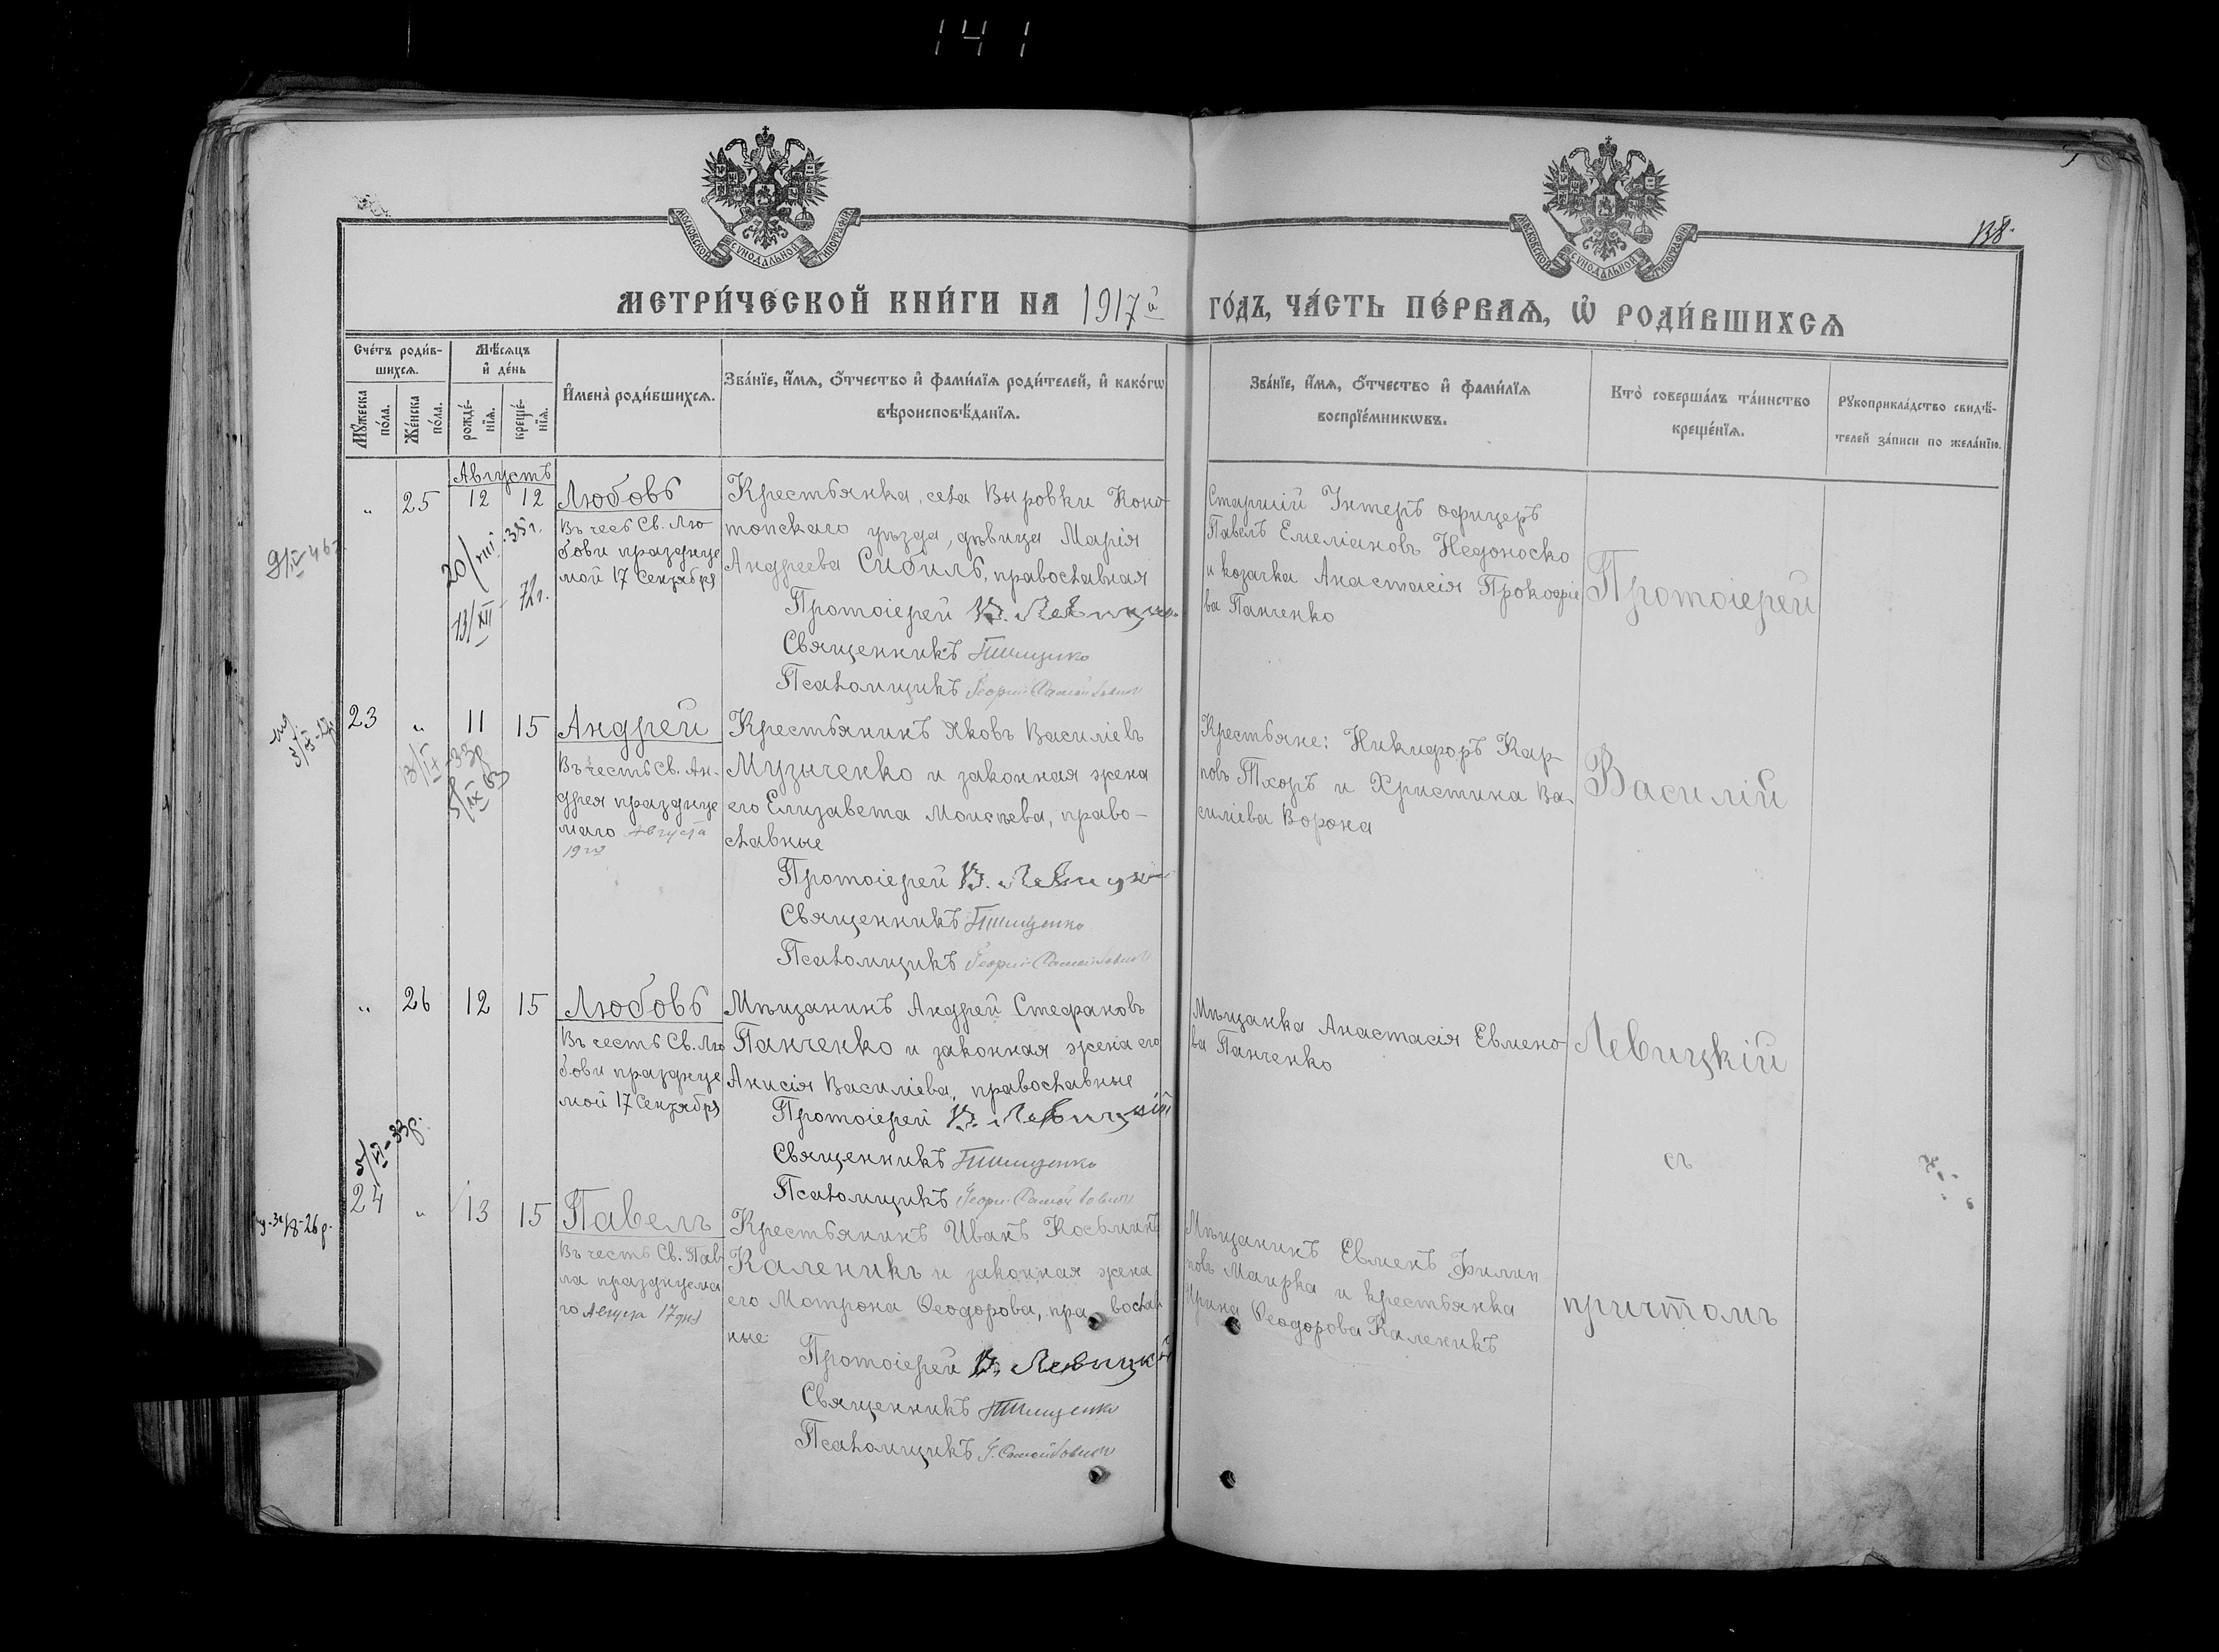 141
138.
МОСКОВСКОЙ СѴНОДАЛЬНОЙ ТИПОГРАФІИ
МОСКОВСКОЙ СѴНОДАЛЬНОЙ ТИПОГРАФІИ
МЕТРИ́ЧЕСКОЙ КНИ́ГИ НА 1917й ГО́ДЪ, ЧА́СТЬ ПЕ́РВАѦ, Ѡ РОДИ́ВШИХСѦ
Сче́тъ роди́в-
шихсѧ.
Мꙋ́жеска
по́ла.
Же́нска
по́ла.
Мѣ́сѧцъ
и҆ де́нь
рожде́-
нїѧ.
креще́-
нїѧ.
И҆мена̀ роди́вшихсѧ.
Зва́нїе, и҆́мѧ, ѻ҆́тчество и҆ фами́лїѧ роди́телей, и҆ како́гѡ
вѣроисповѣ́данїѧ.
Зва́нїе, и҆́мѧ, ѻ҆́тчество и҆ фами́лїѧ
воспрїе́мникѡвъ.
Кто̀ соверша́лъ та́инство
креще́нїѧ.
Рꙋкоприкла́дство свидѣ́-
телей за́писи по жела́нїю.
Августъ
„ 25 12 12 Любовь
Въ чесь Св. Лю
бови празднуе
мой 17 Сентября
20/VIII 35 г.
13/XII - 72 г.
9/IV-46 г.
Крестьянка, села Вировки Коно-
топскаго уѣзда, дѣвица Марія
Андреева Сибиль, православная
Протоіерей В. Левицкій
Священникъ Тищенко
Псаломщикъ Георгій Самойлович
Старшій Унтеръ офицеръ
Павелъ Емеліановъ Недоноско
и козачка Анастасія Прокофіе
ва Панченко
Протоіерей
23 „ 11 15 Андрей
Въ честь Св. Ан-
дрея празднуе
маго Августа
19 го
5/IX 63
Крестьянинъ Яковъ Василіевъ
Музыченко и законная жена
его Елизавета Моисѣева, право-
славные
Протоіерей В. Левицкій
Священникъ Тищенко
Псаломщикъ Георгій Самойлович
Крестьяне: Никифоръ Кар-
повъ Тхоръ и Христина Ва-
силіева Ворона
Василій
„ 26 12 15 Любовь
Въ честь Св. Лю
бови празднуе
мой 17 Сентября
Мѣщанинъ Андрей Стефановъ
Панченко и законная жена его
Анисія Василіева, православные
Протоіерей В. Левицкій
Священникъ Тищенко
Псаломщикъ Георгій Самойлович
Мѣщанка Анастасія Евмено-
ва Панченко
Левицкій
съ
5/VI-33 р.
24 „ 13 15 Павелъ
Въ честь Св. Пав
ла празднуема
го Августа 17 дня
Крестьянинъ Иванъ Косьминъ
Каленикъ и законная жена
его Матрона Ѳеодорова, православ
ные
Протоіерей В. Левицкій
Священникъ Тищенко
Псаломщикъ Г. Самойлович
Мѣщанинъ Евменъ Филип
повъ Маирка и крестьянка
Ирина Ѳеодорова Каленикъ
причтомъ